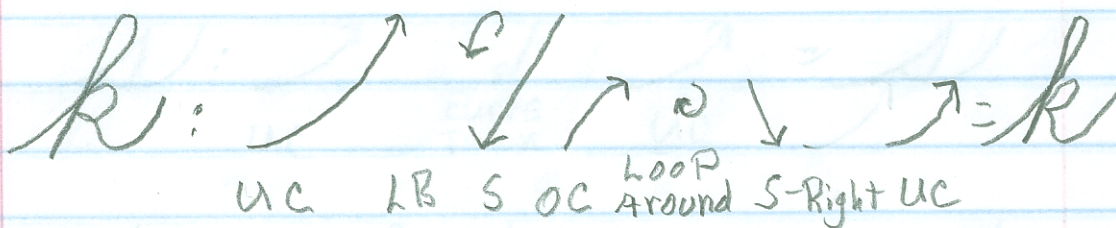 k: = k
UC LB S OC Loop Around S-Right UC